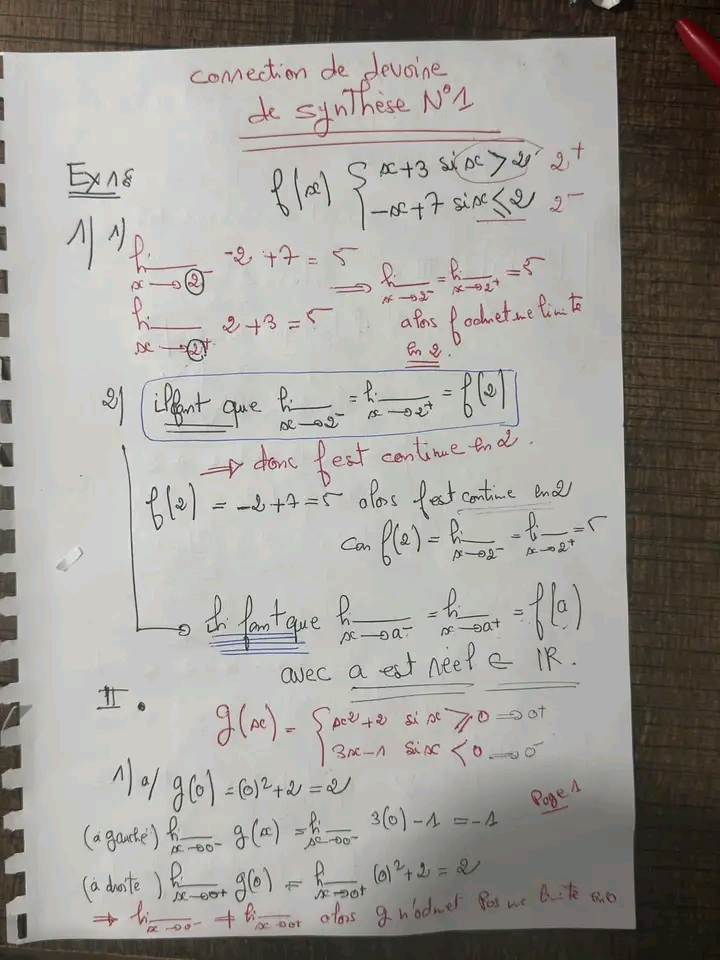 correction de devoire
de synthèse N°1
Ex1:
f(x) { x+3 si x > 2 2⁺
-x+7 si x ≤ 2 2⁻
1) 1) lim x→2⁻ -2+7 = 5
⟹ lim x→2⁻ = lim x→2⁺ = 5
lim x→2⁺ 2+3 = 5
alors f admet une limite
en 2.
2) il faut que lim x→2⁻ = lim x→2⁺ = f(2)
⟹ donc f est continue en 2.
f(2) = -2+7=5 alors f est continue en 2
car f(2) = lim x→2⁻ = lim x→2⁺ = 5
→ il faut que lim x→a⁻ = lim x→a⁺ = f(a)
avec a est réel ∈ IR.
II.
g(x) = { x²+2 si x ≥ 0 → 0⁺
3x-1 si x < 0 → 0⁻
1) a/ g(0) = (0)²+2 = 2
Page 1
(à gauche) lim x→0⁻ g(x) = lim x→0⁻ 3(0)-1 = -1
(à droite) lim x→0⁺ g(0) = lim x→0⁺ (0)²+2 = 2
⟹ lim x→0⁻ ≠ lim x→0⁺ alors g n'admet pas une limite en 0